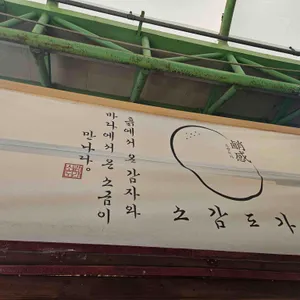 흙에서 온 감자와
바다에서 온 소금이
만나다.
소감도가